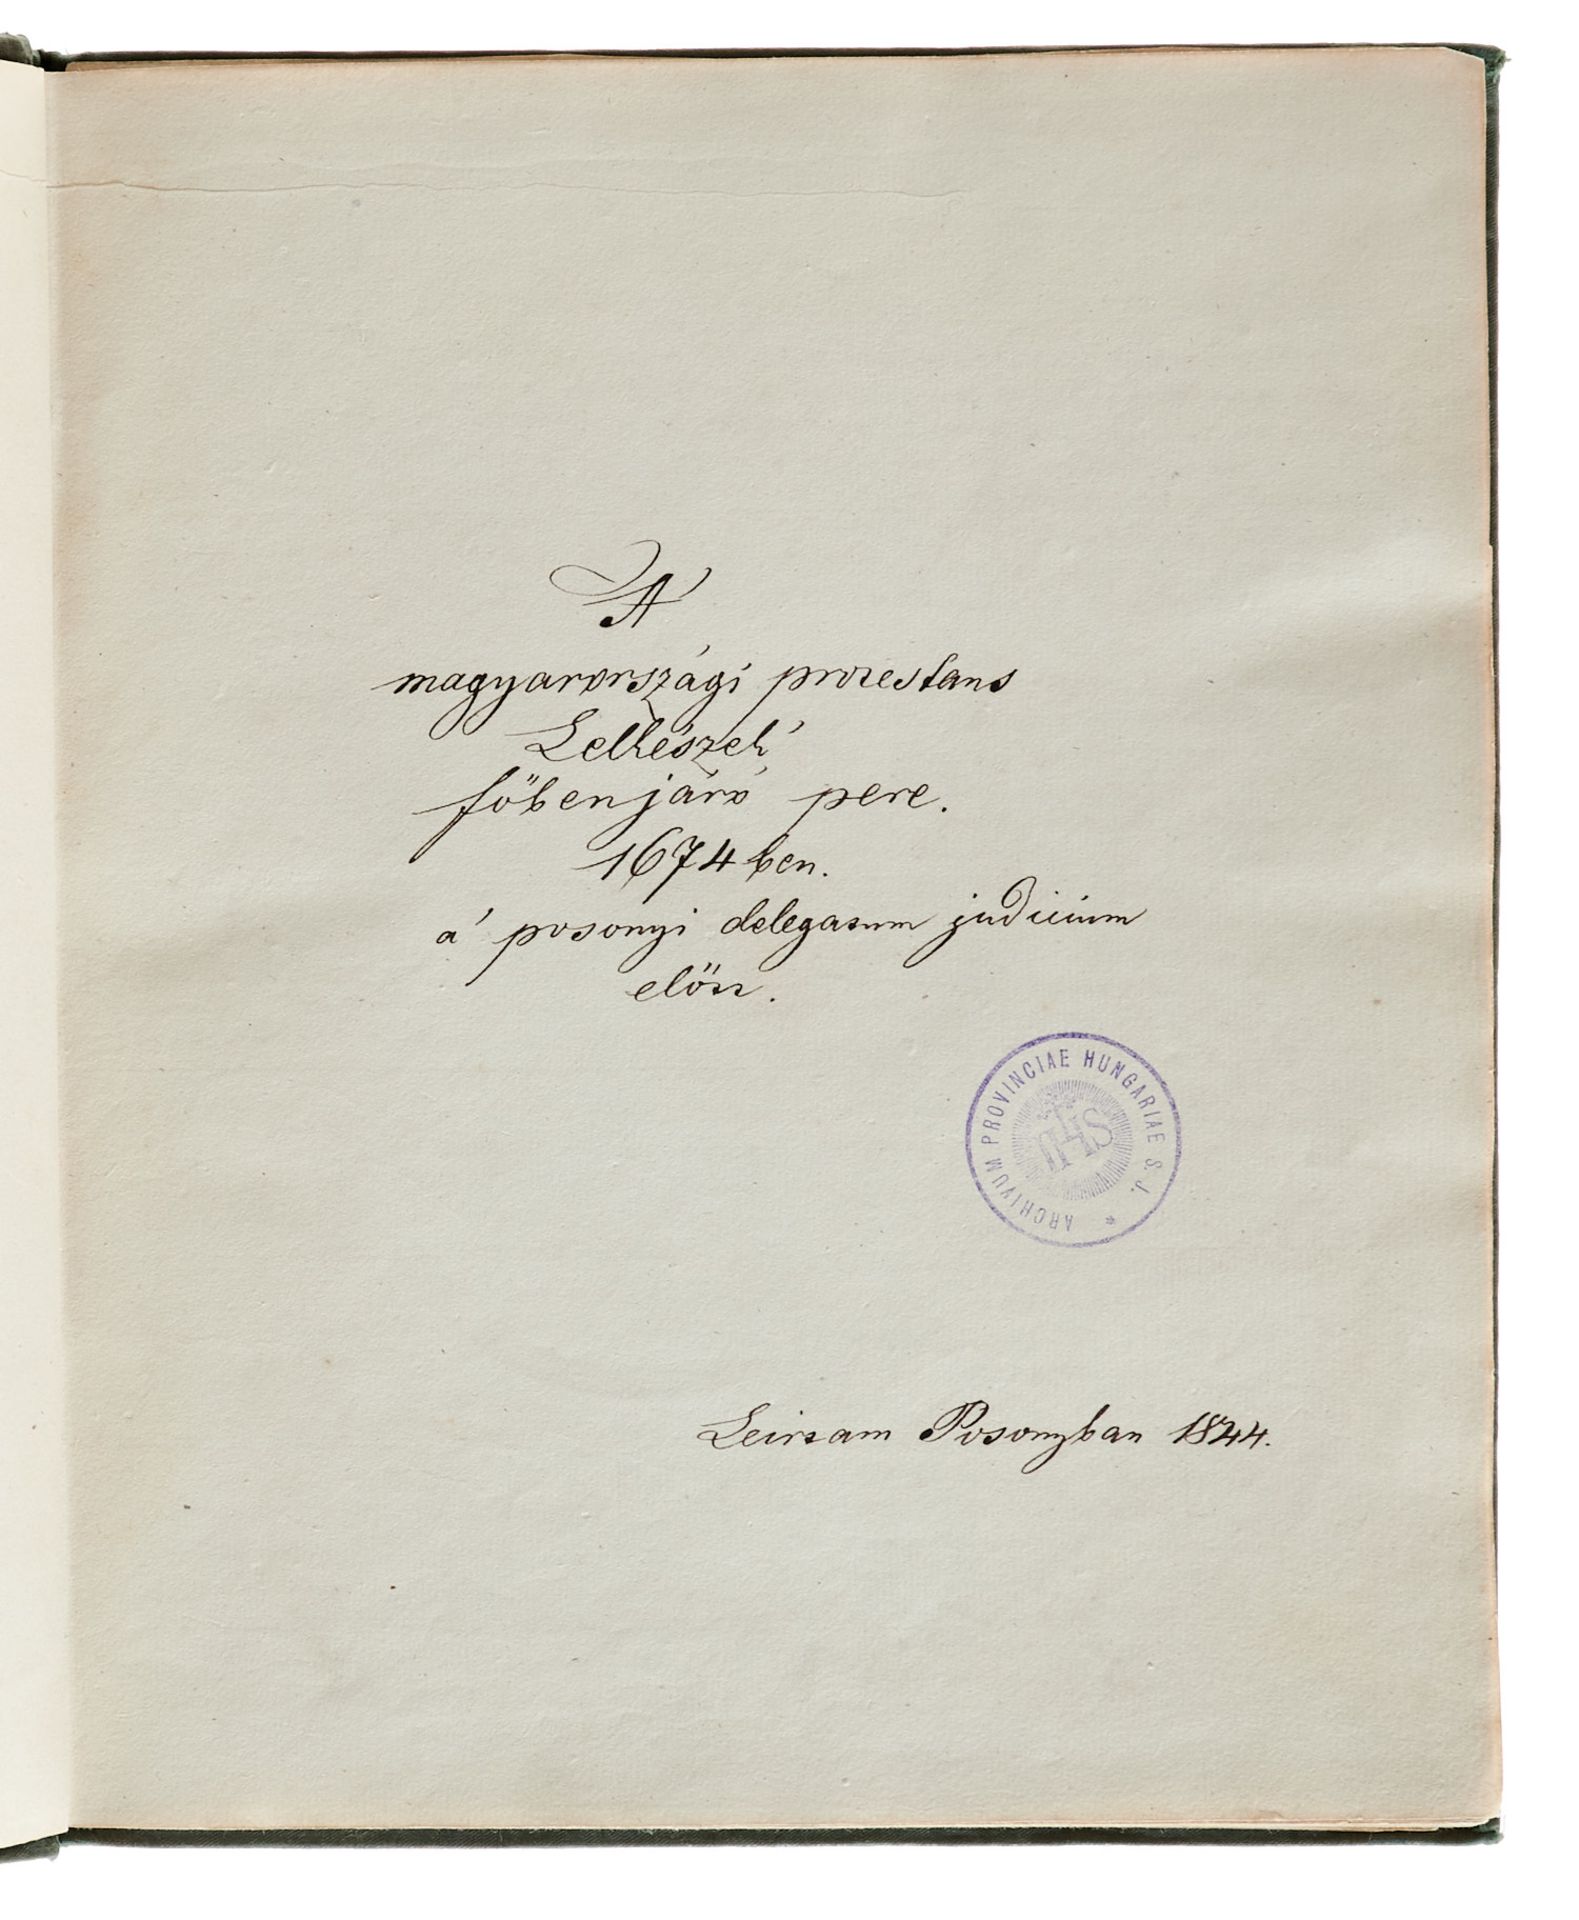 A'
magyarországi protestans
Lelkészek'
főbenjáró pere.
1674ben.
a' posonyi delegatum judicium
előtt.
ARCHIVUM PROVINCIAE HUNGARIAE S. J. *
IHS
Leirtam Posonyban 1844.